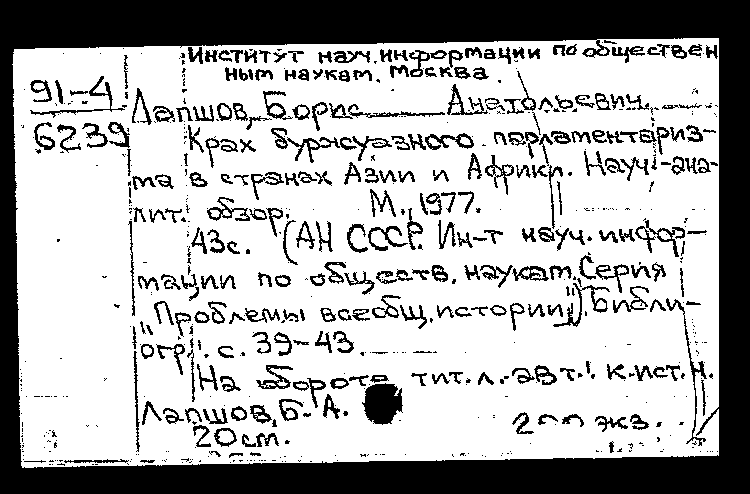 Институт науч. информации по обществен
ным наукам. Москва.
91-4
6239
Лапшов, Борис Анатольевич.
Крах буржуазного парламентариз-
ма в странах Азии и Африки. Науч.-ана-
лит. обзор. М., 1977.
43с. (АН СССР. Ин-т науч. инфор-
мации по обществ. наукам. Серия
„Проблемы всеобщ. истории"). Библи-
огр.: с. 39-43.
На обороте тит. л. авт.: к. ист. н.
Лапшов, Б. А.
20см. 200 экз.